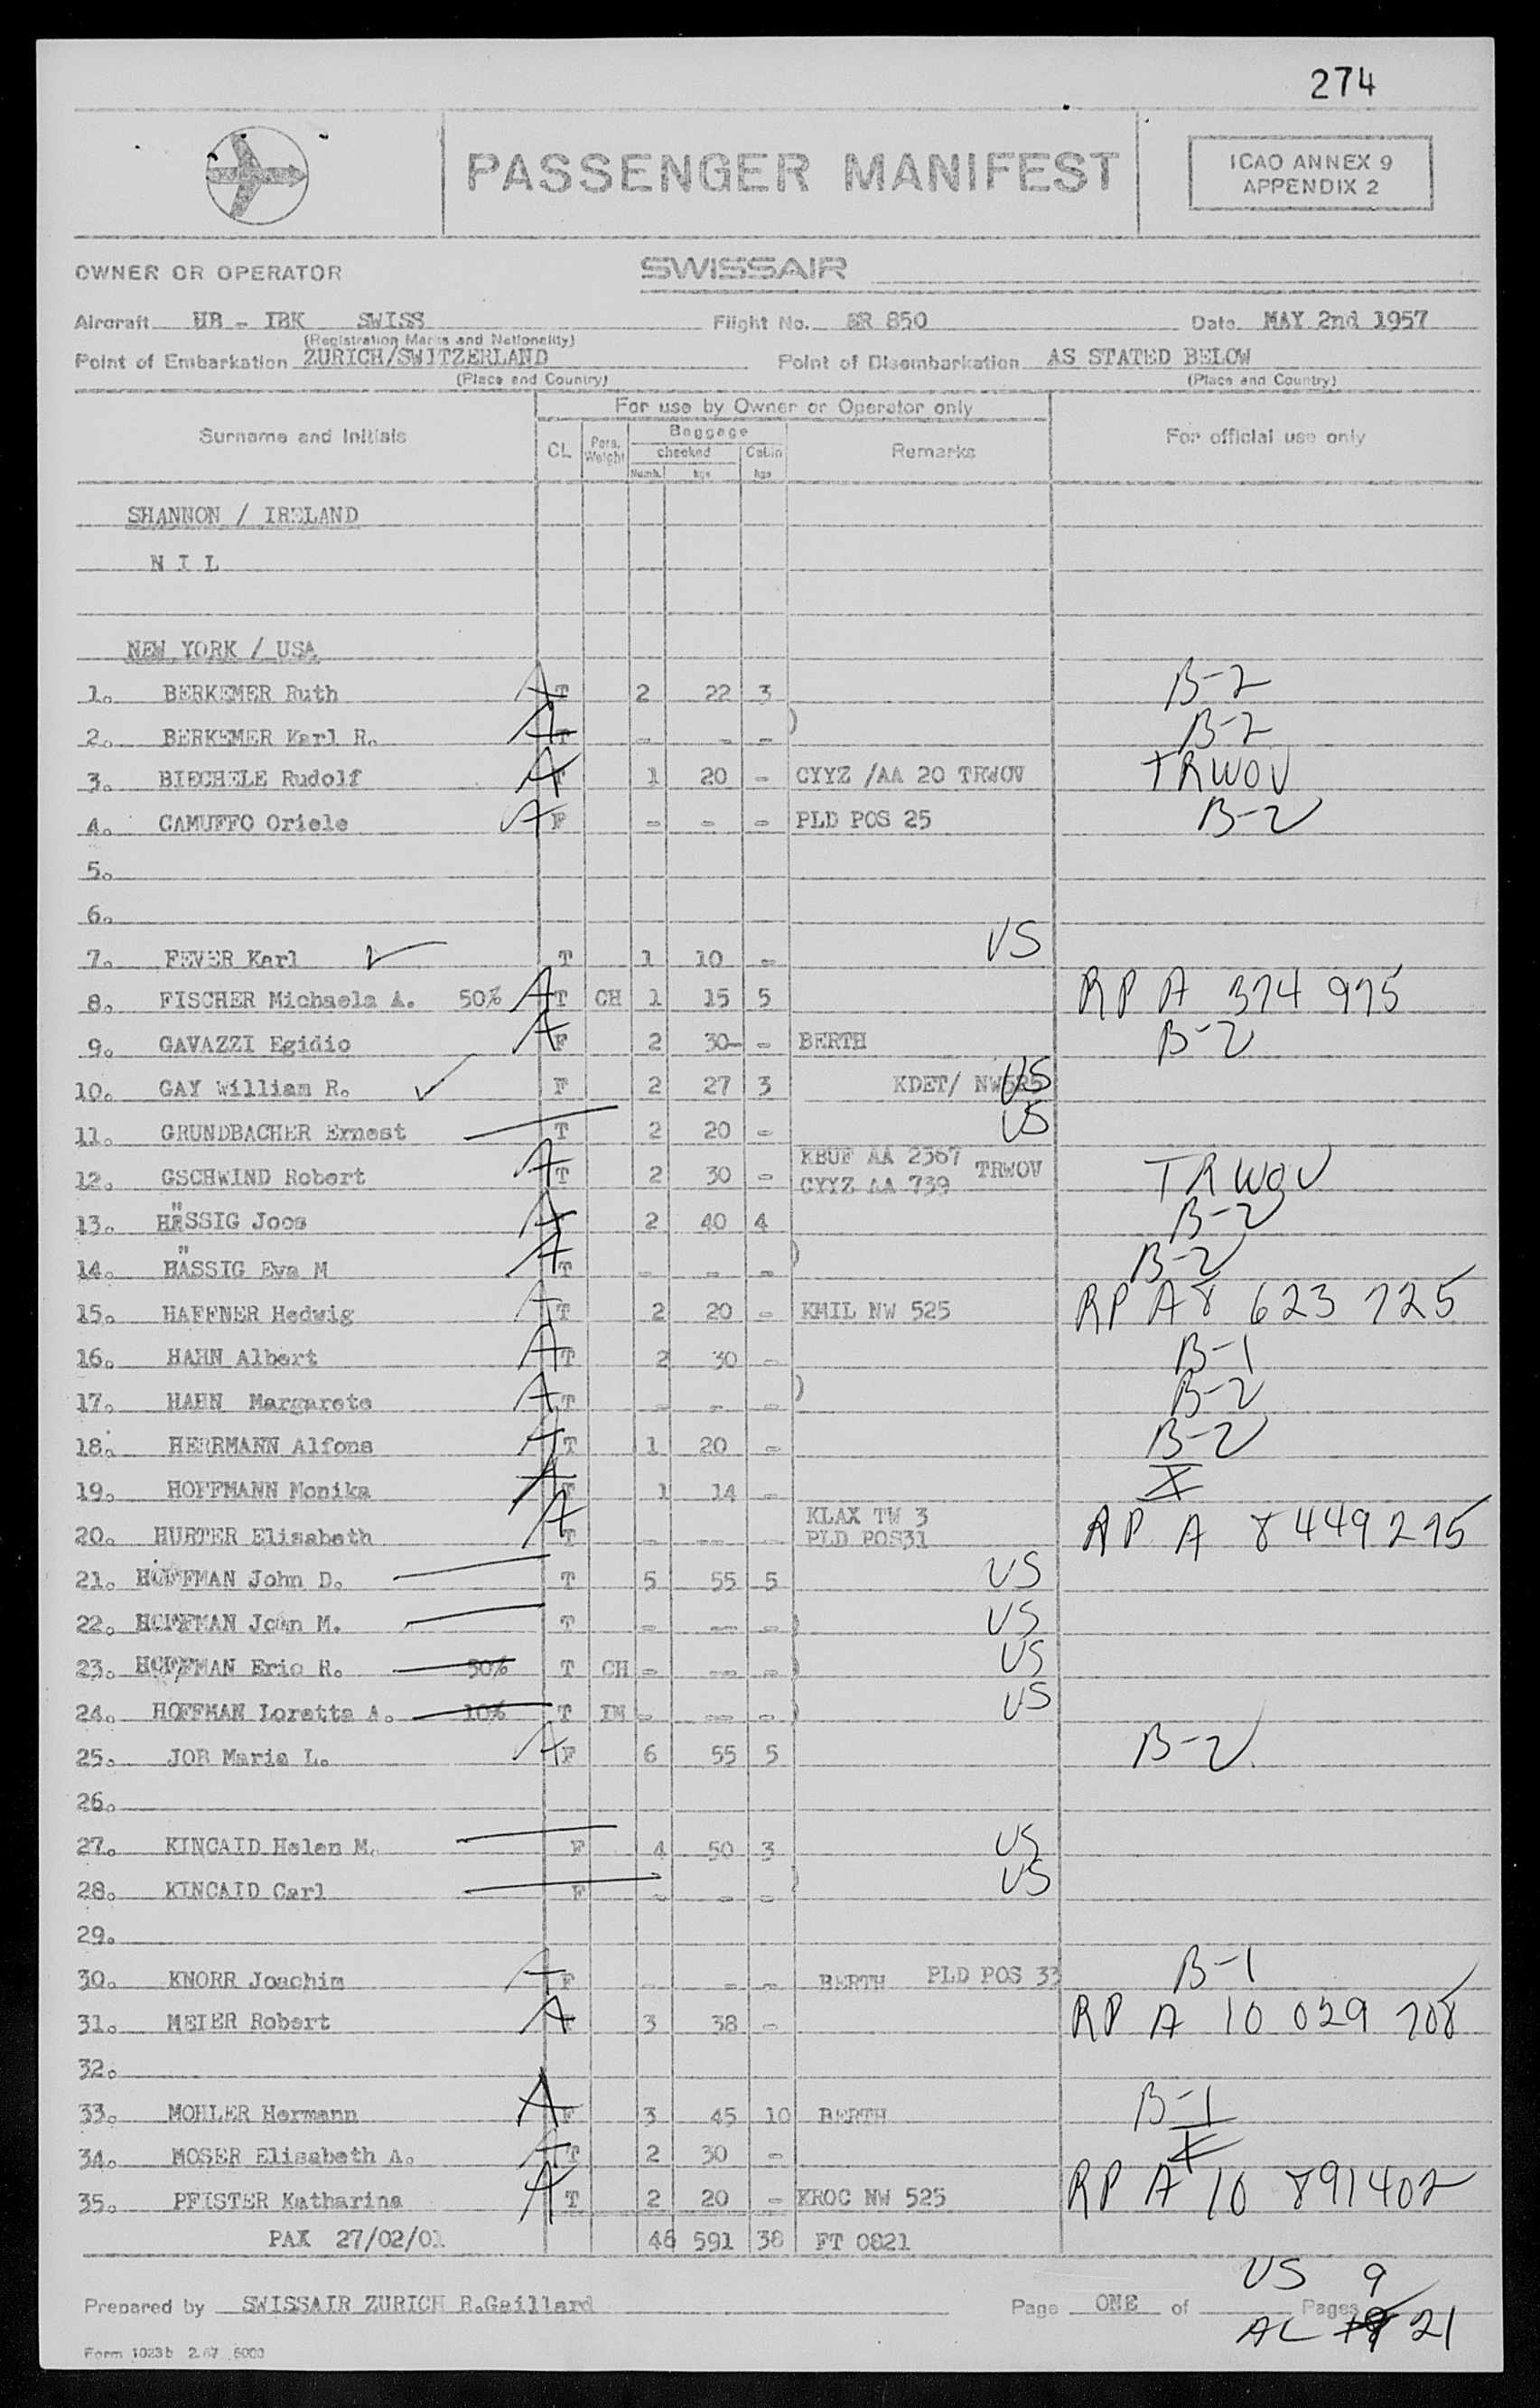 274
PASSENGER MANIFEST
ICAO ANNEX 9
APPENDIX 2
OWNER OR OPERATOR SWISSAIR
Aircraft HB - IBK SWISS Flight No. SR 850 Date MAY 2nd 1957
(Registration Marks and Nationality)
Point of Embarkation ZURICH/SWITZERLAND Point of Disembarkation AS STATED BELOW
(Place and Country) (Place and Country)
For use by Owner or Operator only
Surname and Initials CL Pers. Weight Baggage checked Numb. kgs Cabin kgs Remarks For official use only
SHANNON / IRELAND
N I L
NEW YORK / USA
1. BERKEMER Ruth A T 2 22 3 B-2
2. BERKEMER Karl R. A T - - - ) B-2
3. BIECHELE Rudolf A T 1 20 - CYYZ /AA 20 TRWOV TRWOV
4. CAMUFFO Oriele A F - - - PLD POS 25 B-2
5.
6.
7. FEVER Karl T 1 10 - US
8. FISCHER Michaela A. 50% A T CH 1 15 5 RP A 374 975
9. GAVAZZI Egidio A F 2 30- - BERTH B-2
10. GAY William R. F 2 27 3 KDET/ NW525 US
11. GRUNDBACHER Ernest T 2 20 - US
12. GSCHWIND Robert A T 2 30 - KBUF AA 2367 CYYZ AA 739 TRWOV TRWOV
13. HÄSSIG Joos A 2 40 4 B-2
14. HÄSSIG Eva M A T - - - ) B-2
15. HAFFNER Hedwig A T 2 20 - KMIL NW 525 RP A8 623 725
16. HAHN Albert A T 2 30 - B-1
17. HAHN Margarete A T - - - ) B-2
18. HERRMANN Alfons A T 1 20 - B-2
19. HOFFMANN Monika A T 1 14 - I
20. HURTER Elisabeth A T - -- - KLAX TW 3 PLD POS31 RP A 8449295
21. HOFFMAN John D. T 5 55 5 US
22. HOFFMAN Joan M. T - -- - ) US
23. HOFFMAN Eric R. 50% T CH - -- - ) US
24. HOFFMAN Loretta A. 10% T IN - -- - ) US
25. JOB Maria L. A F 6 55 5 B-2
26.
27. KINCAID Helen M. F 4 50 3 US
28. KINCAID Carl F - - - ) US
29.
30. KNORR Joachim A F - - - BERTH PLD POS 33 B-1
31. MEIER Robert A 3 38 - RP A 10 029 708
32.
33. MOHLER Hermann A F 3 45 10 BERTH B-1
34. MOSER Elisabeth A. A T 2 30 - I
35. PFISTER Katharina A T 2 20 - KROC NW 525 RP A 10 891402
PAX 27/02/01 46 591 38 FT 0821
US 9
Prepared by SWISSAIR ZURICH R.Gaillard Page ONE of Pages
AL 21
Form 1023b 2.57 5000